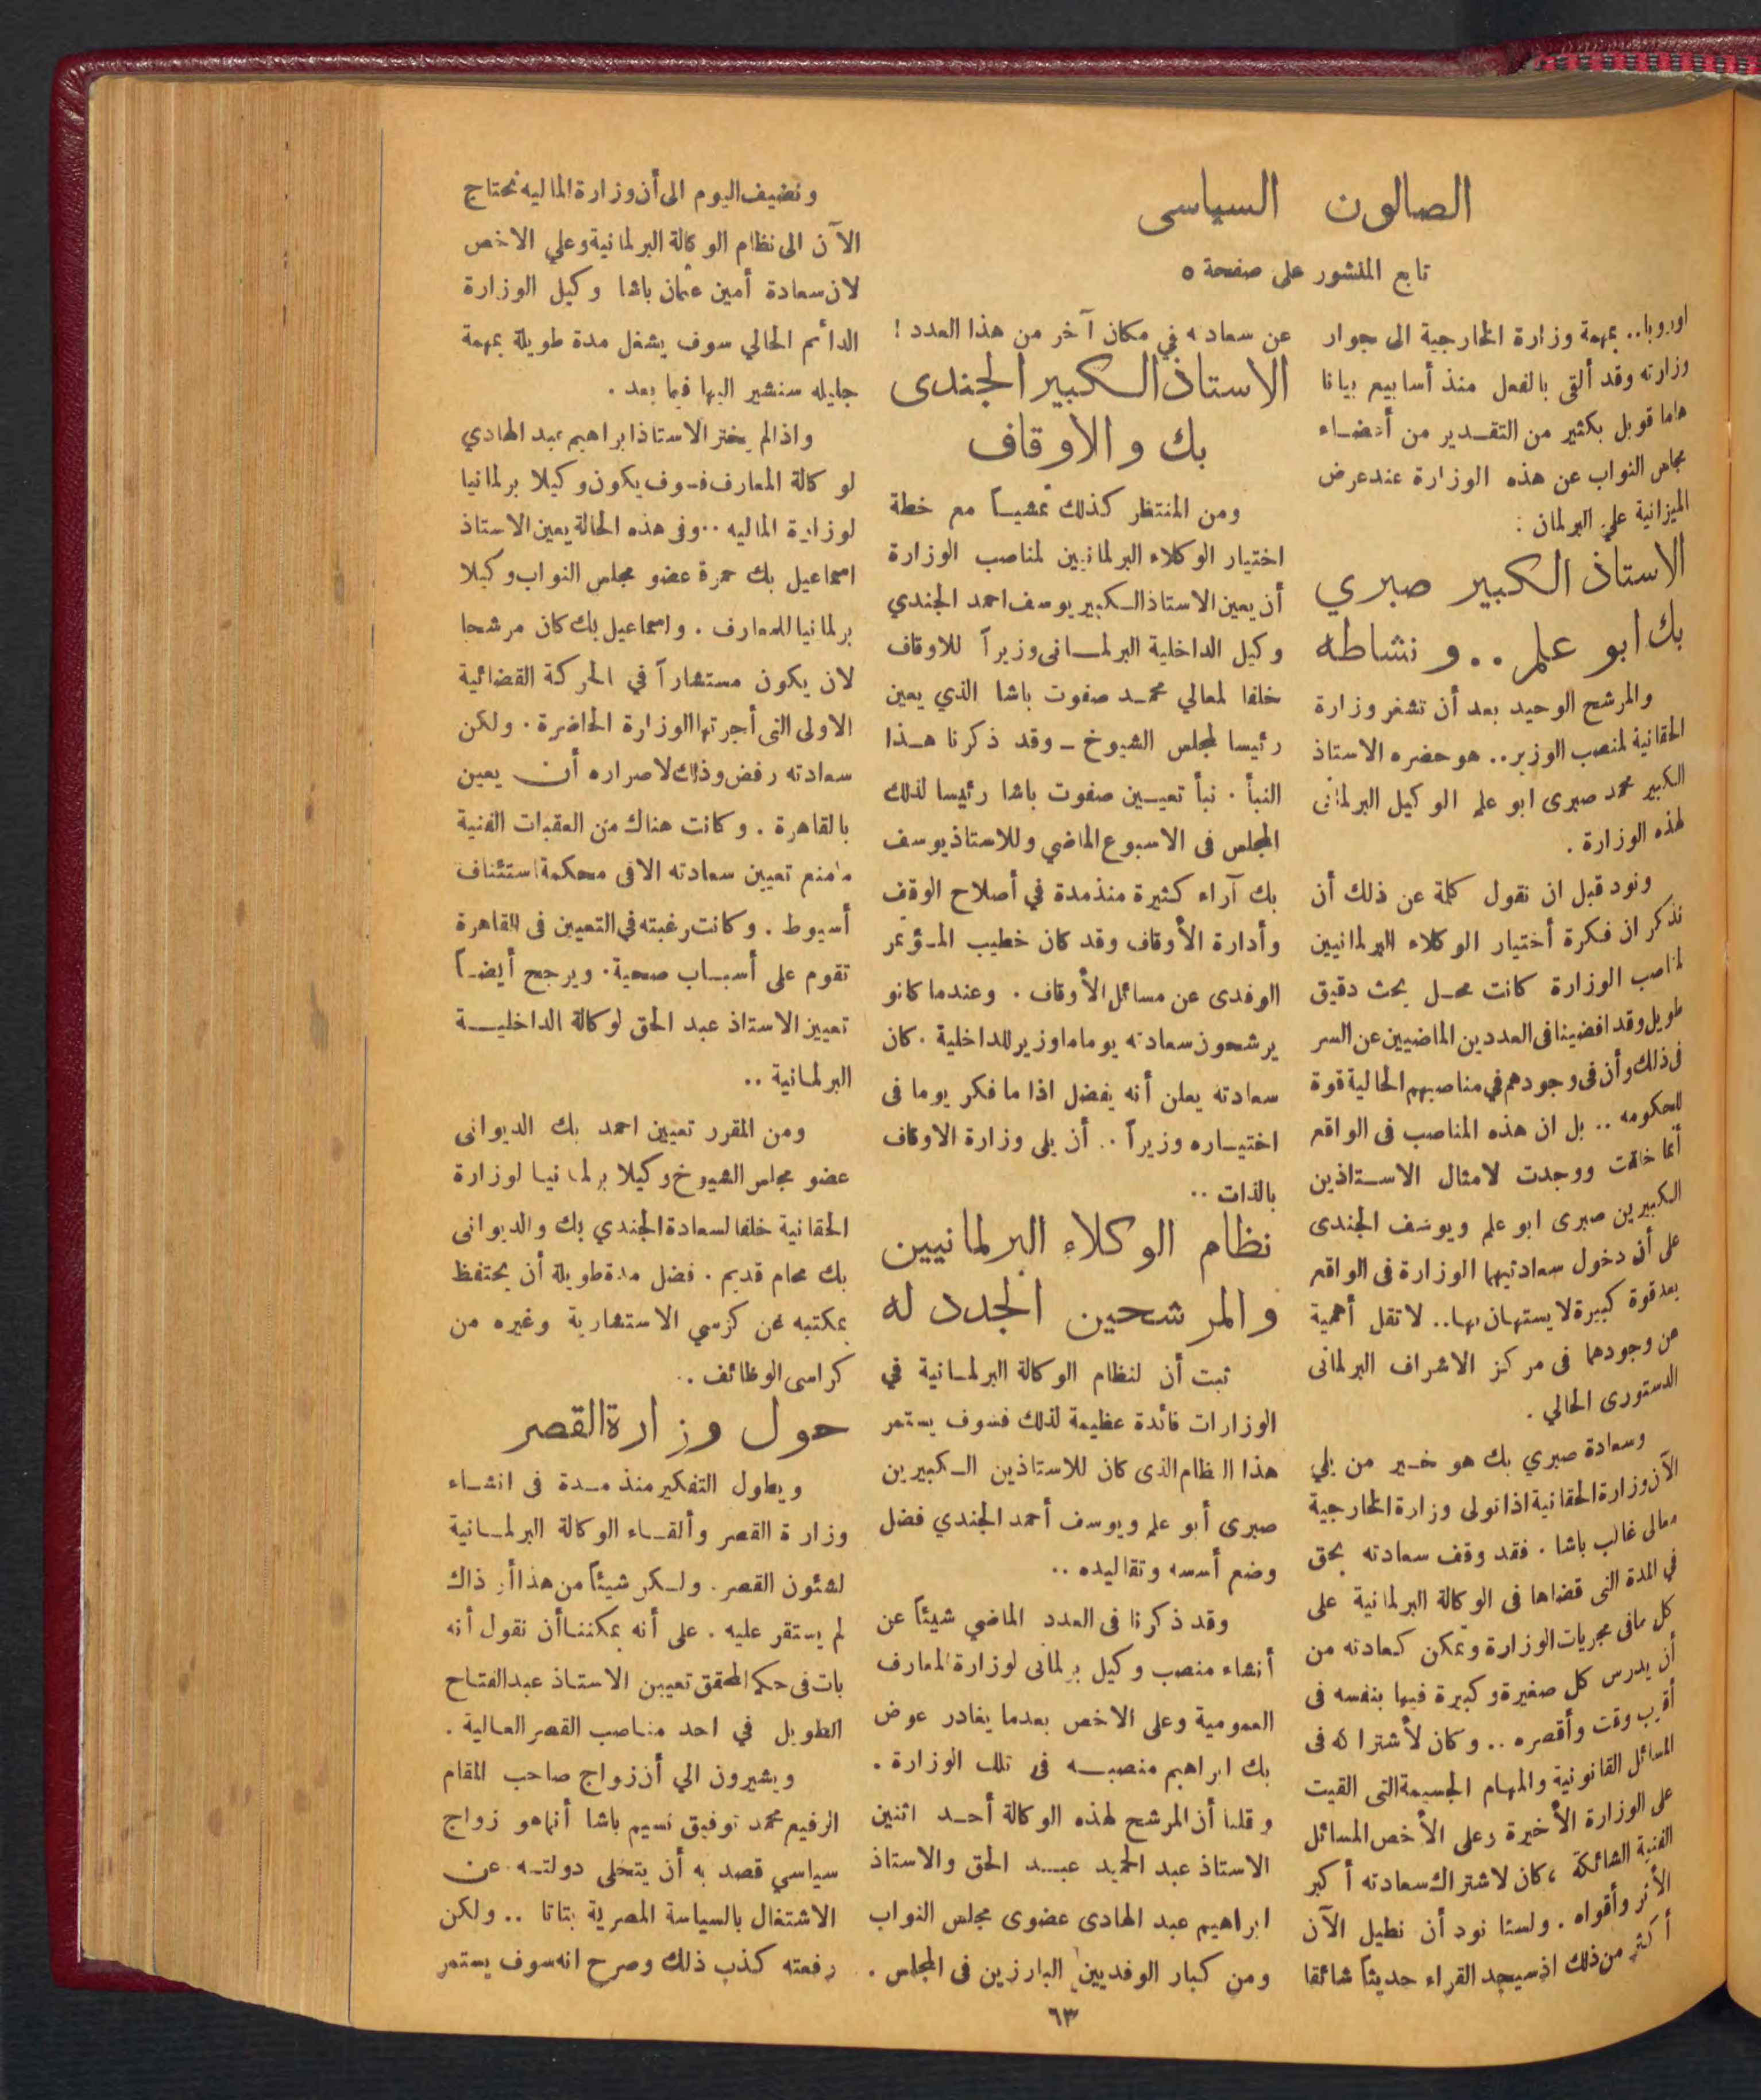 الصالون السياسى
تابع المنشور على صفحة ٥
اوروبا.. بمهمة وزارة الخارجية الى جوار
وزارته وقد ألقى بالفعل منذ أسابيع بيانا
هاما قوبل بكثير من التقدير من أعضاء
مجلس النواب عن هذه الوزارة عند عرض
الميزانية علي البرلمان :
الاستاذ الكبير صبري
بك ابو علم .. و نشاطه
والمرشح الوحيد بعد أن تشغر وزارة
الحقانية لمنصب الوزير.. هو حضره الاستاذ
الكبير محمد صبرى ابو علم الوكيل البرلمانى
لهذه الوزارة .
ونود قبل ان نقول كلمة عن ذلك أن
نذكر ان فكرة أختيار الوكلاء البرلمانيين
لمناصب الوزارة كانت محل بحث دقيق
طويل وقد افضينا فى العددين الماضيين عن السر
فى ذلك وأن فى وجودهم في مناصبهم الحالية قوة
للحكومه .. بل ان هذه المناصب فى الواقع
أنما خلقت ووجدت لامثال الاستاذين
الكبيرين صبرى ابو علم ويوسف الجندى
على أن دخول سعادتيهما الوزارة فى الواقع
يعد قوة كبيرة لا يستهان بها.. لا تقل أهمية
عن وجودهما فى مركز الاشراف البرلمانى
الدستورى الحالي .
وسعادة صبري بك هو خير من يلي
الآن وزارة الحقانية اذا تولى وزارة الخارجية
معالى غالب باشا . فقد وقف سعادته بحق
في المدة التى قضاها فى الوكالة البرلمانية على
كل مافى مجريات الوزارة وتمكن كعادته من
أن يدرس كل صغيرة وكبيرة فيها بنفسه فى
أقرب وقت وأقصره .. وكان لأشتراكه فى
المسائل القانونية والمهام الجسيمة التى القيت
على الوزارة الأخيرة وعلى الأخص المسائل
الفنية الشائكة ، كان لاشتراك سعادته أكبر
الأثر وأقواه . ولسنا نود أن نطيل الآن
أكثر من ذلك اذ سيجد القراء حديثاً شائقا
عن سعادته في مكان آخر من هذا العدد !
الاستاذ الكبير الجندى
بك و الاوقاف
ومن المنتظر كذلك تمشياً مع خطة
اختيار الوكلاء البرلمانيين لمناصب الوزارة
أن يعين الاستاذ الكبير يوسف احمد الجندي
وكيل الداخلية البرلمانى وزيراً للاوقاف
خلفا لمعالي محمد صفوت باشا الذي يعين
رئيسا لمجلس الشيوخ ـ وقد ذكرنا هذا
النبأ . نبأ تعيين صفوت باشا رئيسا لذلك
المجلس فى الاسبوع الماضي وللاستاذ يوسف
بك آراء كثيرة منذ مدة في أصلاح الوقف
وأدارة الأوقاف وقد كان خطيب المؤتمر
الوفدى عن مسائل الأوقاف . وعندما كانو
يرشحون سعادته يوما ما وزير للداخلية . كان
سعادته يعلن أنه يفضل اذا ما فكر يوما فى
اختياره وزيراً .. أن يلى وزارة الاوقاف
بالذات ..
نظام الوكلاء البرلمانيين
والمرشحين الجدد له
ثبت أن لنظام الوكالة البرلمانية في
الوزارات فائدة عظيمة لذلك فسوف يستمر
هذا النظام الذى كان للاستاذين الكبيرين
صبرى أبو علم ويوسف أحمد الجندي فضل
وضع أسسه وتقاليده ..
وقد ذكرنا فى العدد الماضي شيئاً عن
أنشاء منصب وكيل برلمانى لوزارة المعارف
العمومية وعلى الاخص بعدما يغادر عوض
بك ابراهيم منصبه فى تلك الوزارة .
وقلنا أن المرشح لهذه الوكالة أحد اثنين
الاستاذ عبد الحميد عبد الحق والاستاذ
ابراهيم عبد الهادى عضوى مجلس النواب
ومن كبار الوفديين البارزين فى المجلس .
ونضيف اليوم الى أن وزارة الماليه تحتاج
الآن الى نظام الوكالة البرلمانية وعلي الاخص
لان سعادة أمين عثمان باشا وكيل الوزارة
الدائم الحالي سوف يشغل مدة طويلة بمهمة
جليله سنشير اليها فيما بعد .
واذا لم يختر الاستاذ ابراهيم عبد الهادي
لوكالة المعارف فسوف يكون وكيلا برلمانيا
لوزارة الماليه .. وفى هذه الحالة يعين الاستاذ
اسماعيل بك حمزة عضو مجلس النواب وكيلا
برلمانيا للمعارف . واسماعيل بك كان مرشحا
لان يكون مستشاراً في الحركة القضائية
الاولى التى أجرتها الوزارة الحاضرة . ولكن
سعادته رفض وذلك لاصراره أن يعين
بالقاهرة . وكانت هناك من العقبات الفنية
مامنع تعيين سعادته الا فى محكمة استئناف
أسيوط . وكانت رغبته في التعيين فى القاهرة
تقوم على أسباب صحية . ويرجح أيضاً
تعيين الاستاذ عبد الحق لوكالة الداخلية
البرلمانية ..
ومن المقرر تعيين احمد بك الديوانى
عضو مجلس الشيوخ وكيلا برلمانيا لوزارة
الحقانية خلفا لسعادة الجندي بك والديوانى
بك محام قديم . فضل مدة طويلة أن يحتفظ
بمكتبه عن كرسي الاستشارية وغيره من
كراسى الوظائف .
حول وزارة القصر
ويطول التفكير منذ مدة فى انشاء
وزارة القصر وألقاء الوكالة البرلمانية
لشئون القصر . ولكن شيئاً من هذا أو ذاك
لم يستقر عليه . على أنه يمكننا أن نقول أنه
بات فى حكم المحقق تعيين الاستاذ عبد الفتاح
الطويل في احد مناصب القصر العالية .
ويشيرون الي أن زواج صاحب المقام
الرفيع محمد توفيق نسيم باشا أنما هو زواج
سياسي قصد به أن يتخلى دولته عن
الاشتغال بالسياسة المصرية بتاتا .. ولكن
رفعته كذب ذلك وصرح انه سوف يستمر
٦٣